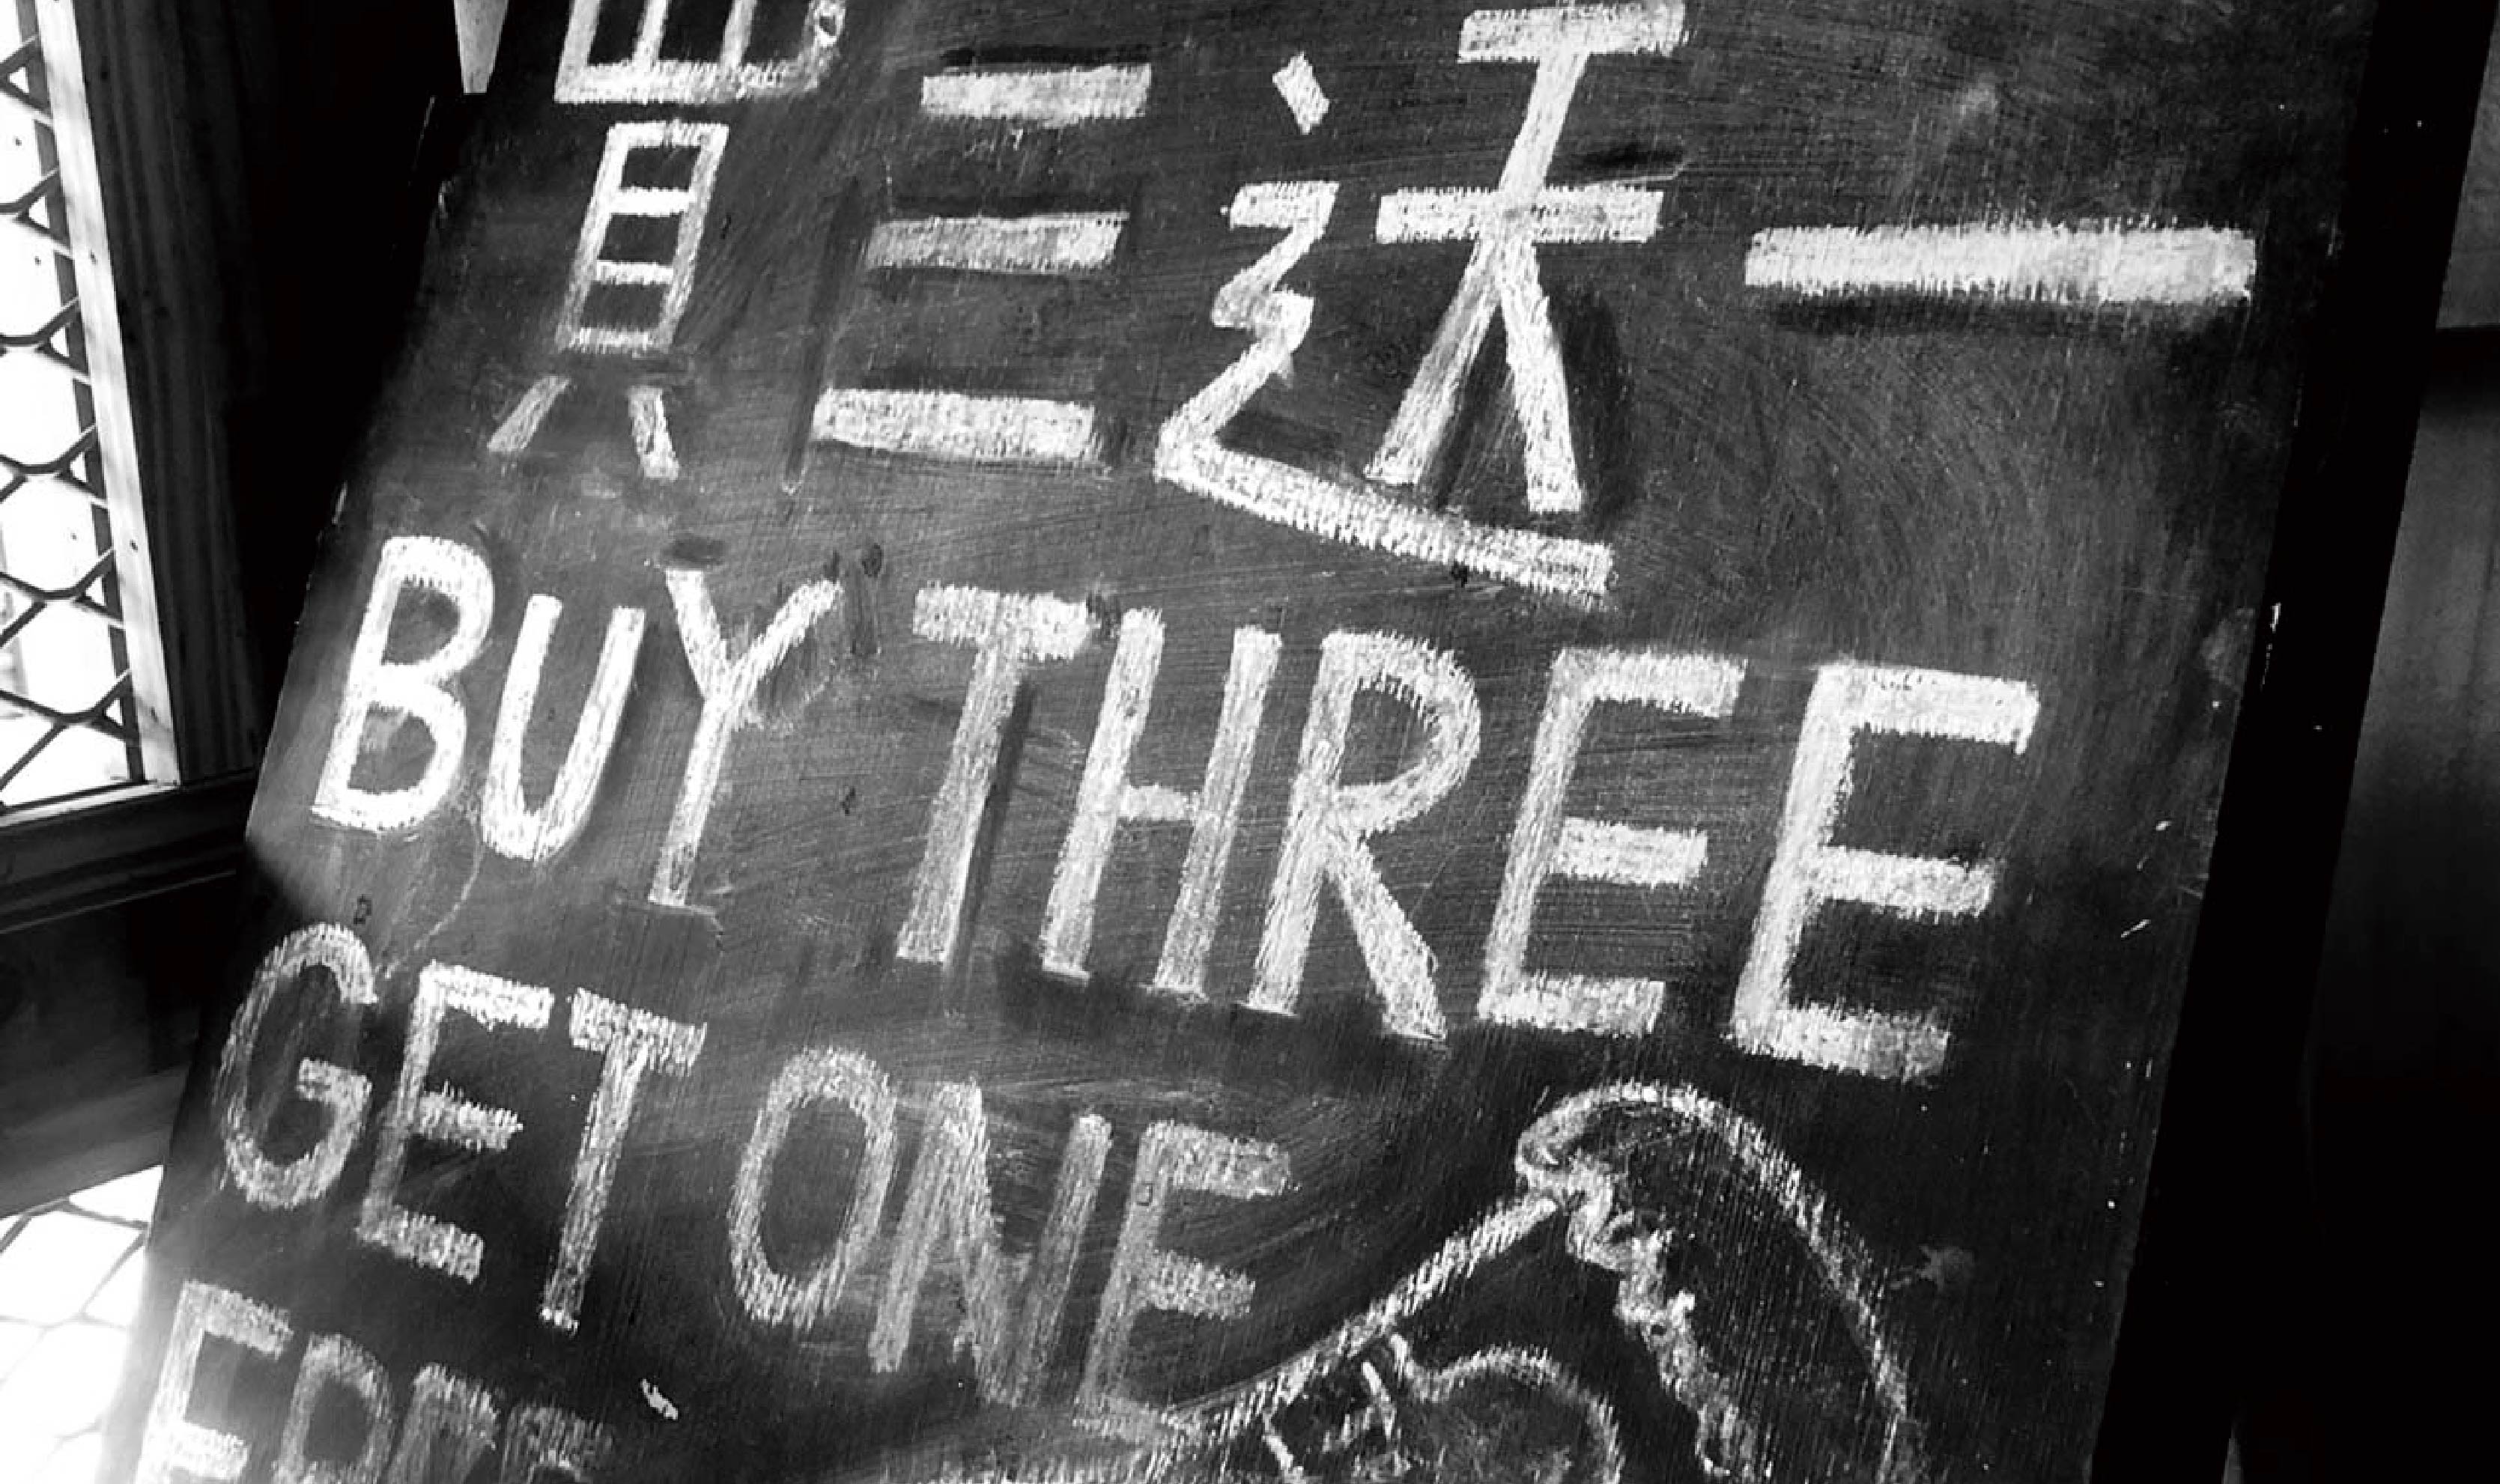 買三迗一
BUY THREE
GET ONE